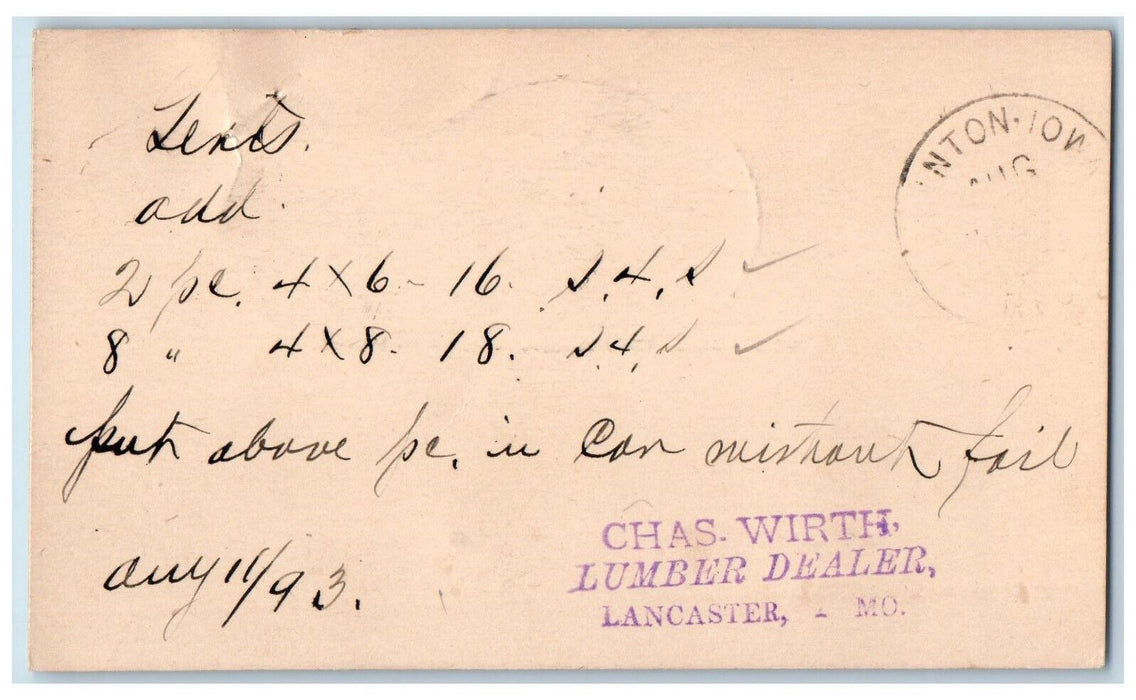 Gents.
add.
2 pc. 4x6 - 16. S.4.S
8 " 4x8 - 18. S.4.S
put above pc. in Car without fail
Aug 11/93.
CHAS. WIRTH,
LUMBER DEALER,
LANCASTER, - MO.
INTON. IOWA
AUG